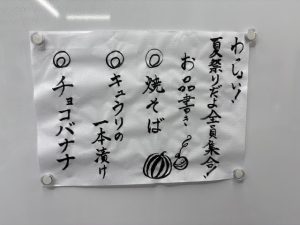 わっしょい!
夏祭りだよ全員集合!
お品書き
◎焼そば
◎キュウリの
一本漬け
◎チョコバナナ